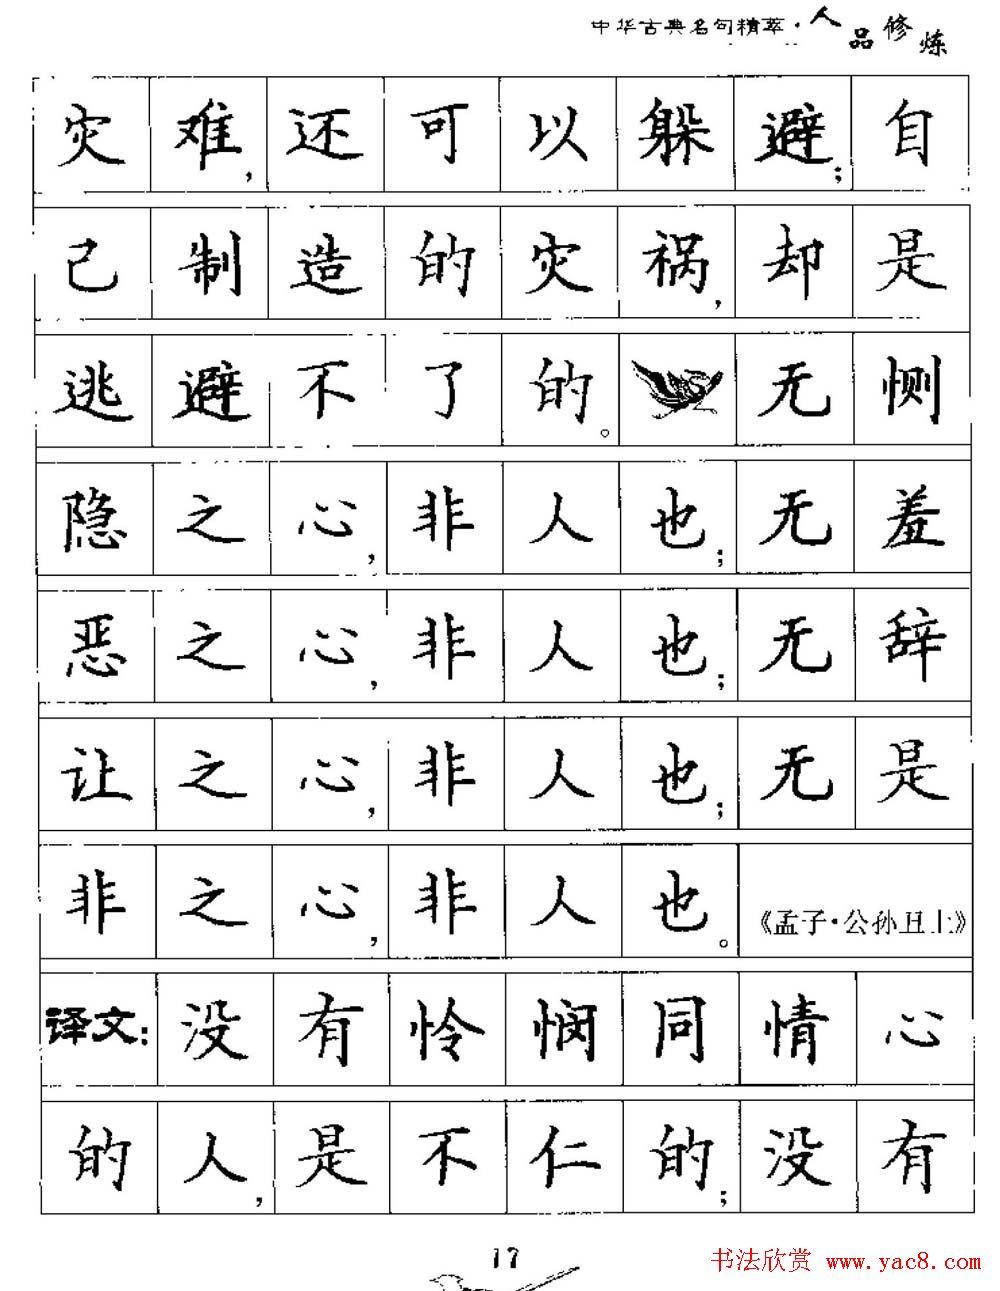 中华古典名句精萃·人品修炼
灾难，还可以躲避；自
己制造的灾祸，却是
逃避不了的。无恻
隐之心，非人也；无羞
恶之心，非人也；无辞
让之心，非人也；无是
非之心，非人也。《孟子·公孙丑上》
译文：没有怜悯同情心
的人，是不仁的；没有
17
书法欣赏 www.yac8.com